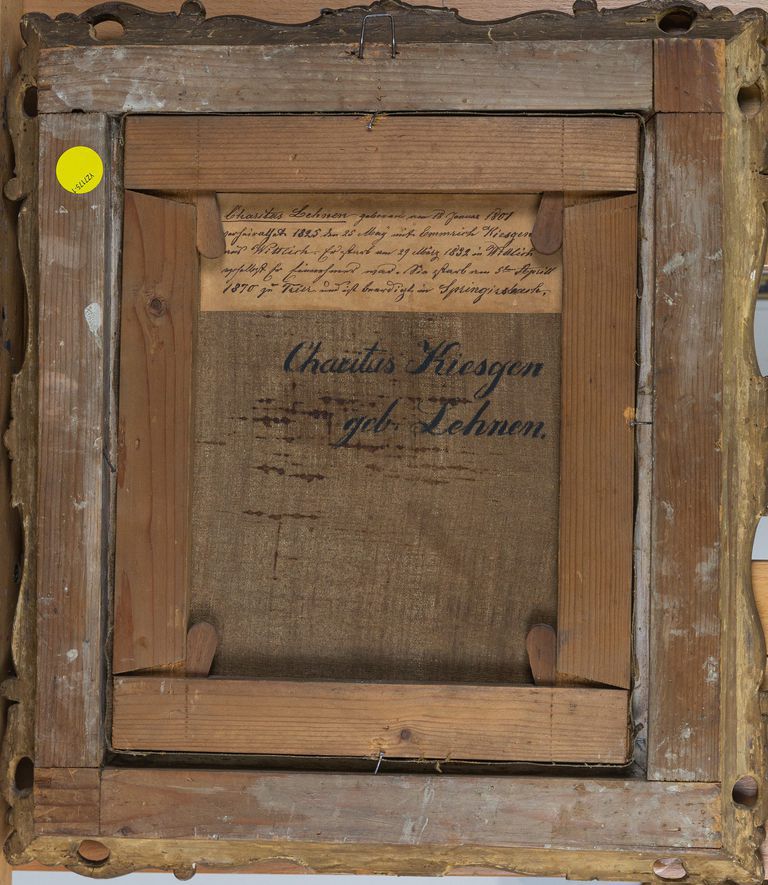 YZ7175-1
Charitas Lehnen geboren am 18 Januar 1801
verheirathet 1825 den 25 May mit Emmrich Kiesgen
aus Wittlich. Er starb am 29 März 1832 in Wittlich
er Einnehmer war. Sie starb am 5ten April
1870 zu Trier und ist beerdigt in Springirsbach.
Charitas Kiesgen
geb. Lehnen.